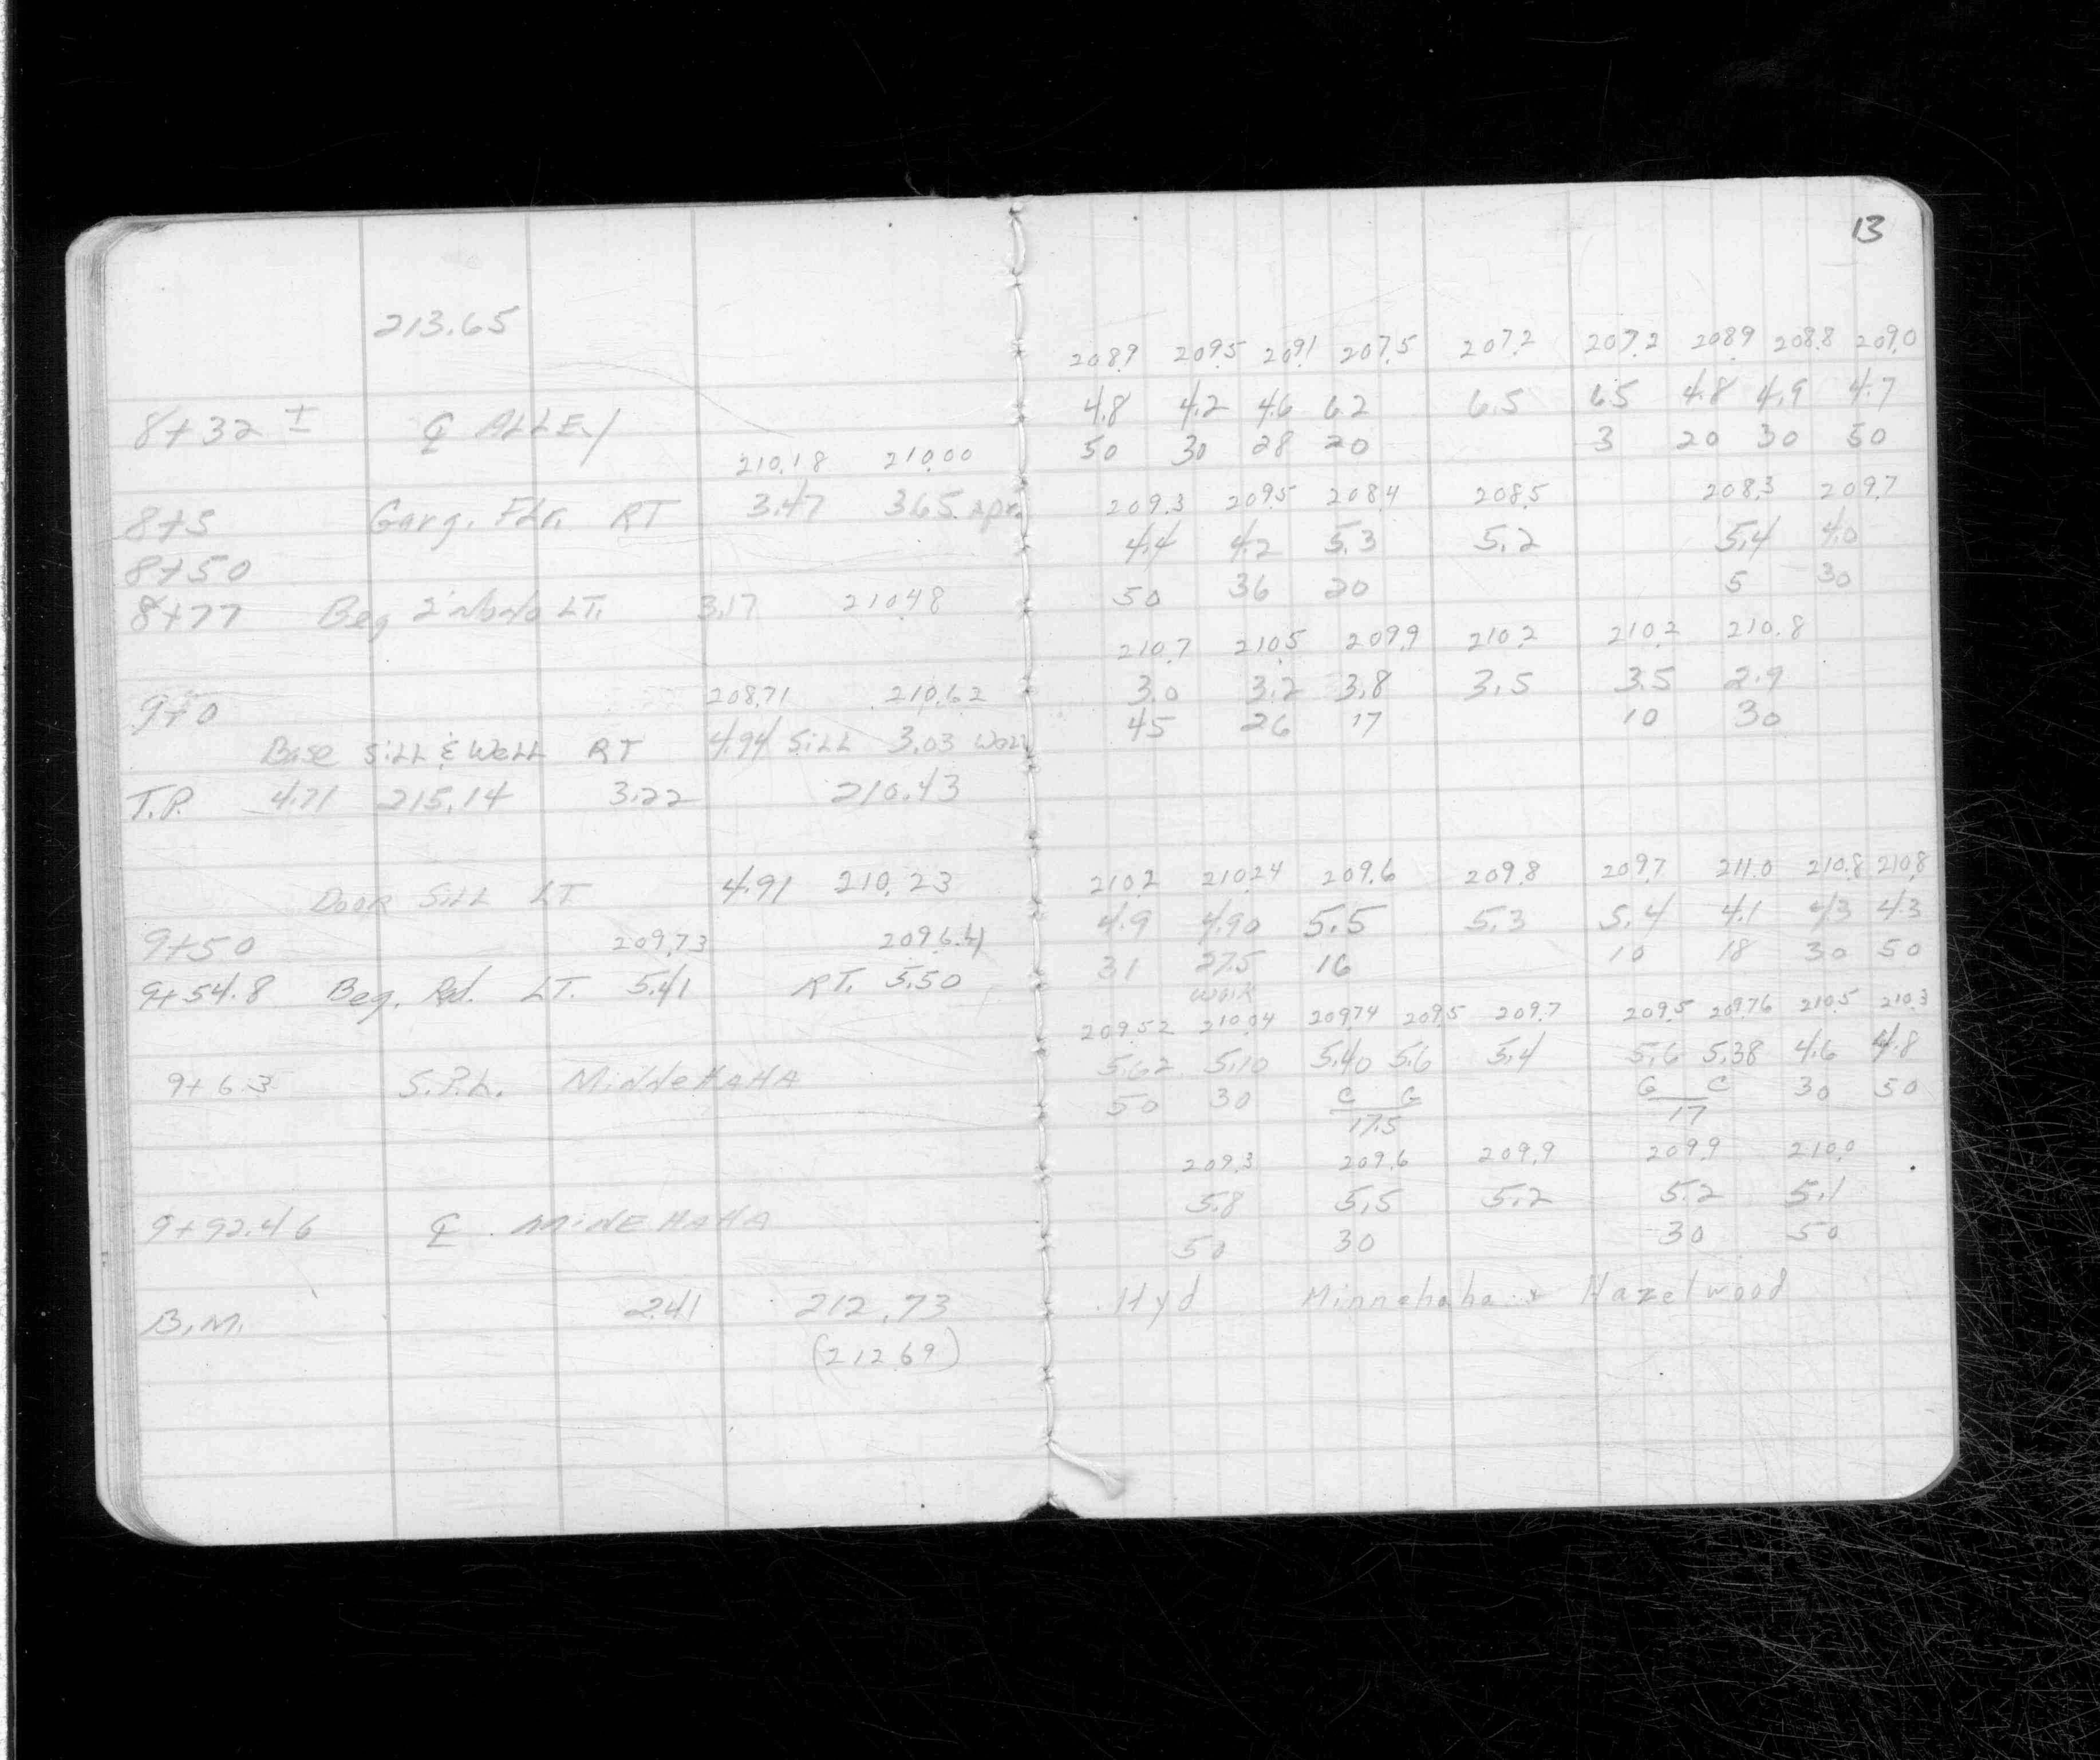 213.65
8+32 ± ℄ ALLEY
210.18 210.00
8+5 Garg. Flr. RT 3.47 3.65 Apr.
8+50
8+77 Beg LT. 3.17 210.48
208.71 210.62
9+0
Base Sill & Wall RT 4.94 Sill 3.03 Wall
T.P. 4.71 215.14 3.22 210.43
Door Sill LT 4.91 210.23
9+50 209.73 209.64
9+54.8 Beg. Rad. LT. 5.41 RT. 5.50
9+63 S.P.L. Minnehaha
9+92.46 ℄ MINEHAHA
B.M. 2.41 212.73
(212.69)
13
208.9 209.5 209.1 207.5 207.2 207.2 208.9 208.8 209.0
4.8 4.2 4.6 6.2 6.5 6.5 4.8 4.9 4.7
50 30 28 20 3 20 30 50
209.3 209.5 208.4 208.5 208.3 209.7
4.4 4.2 5.3 5.2 5.4 4.0
50 36 20 5 30
210.7 210.5 209.9 210.2 210.2 210.8
3.0 3.2 3.8 3.5 3.5 2.9
45 26 17 10 30
210.2 210.24 209.6 209.8 209.7 211.0 210.8 210.8
4.9 4.90 5.5 5.3 5.4 4.1 4.3 4.3
31 27.5 16 10 18 30 50
Walk
209.52 210.04 209.74 209.5 209.7 209.5 209.76 210.5 210.3
5.62 5.10 5.40 5.6 5.4 5.6 5.38 4.6 4.8
50 30 C G G C 30 50
17.5 17
209.3 209.6 209.9 209.9 210.0
5.8 5.5 5.2 5.2 5.1
50 30 30 50
Hyd Minnehaha & Hazelwood